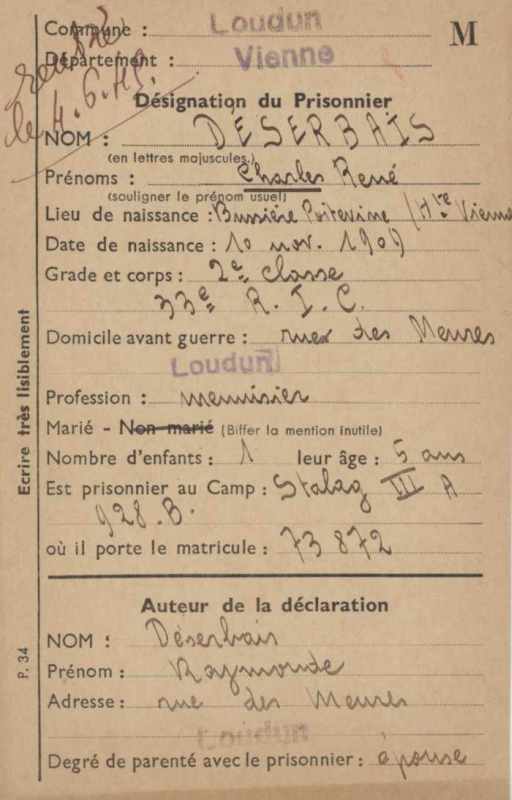 Commune : Loudun
M
Département : Vienne
rentré
le 4.6.45.
Désignation du Prisonnier
NOM : DÉSERBAIS
(en lettres majuscules.)
Prénoms : Charles René
(souligner le prénom usuel)
Lieu de naissance : Bussière Poitevine (Hte Vienne
Date de naissance : 10 nov. 1909
Grade et corps : 2e classe
33e R. I. C.
Domicile avant guerre : rue des Meures
Loudun
Profession : menuisier
Marié - Non marié (Biffer la mention inutile)
Nombre d'enfants : 1 leur âge : 5 ans
Est prisonnier au Camp : Stalag III A
928.B.
où il porte le matricule : 73 872
Auteur de la déclaration
NOM : Déserbais
Prénom : Raymonde
Adresse : rue des Meures
Loudun
Degré de parenté avec le prisonnier : épouse
Ecrire très lisiblement
P. 34